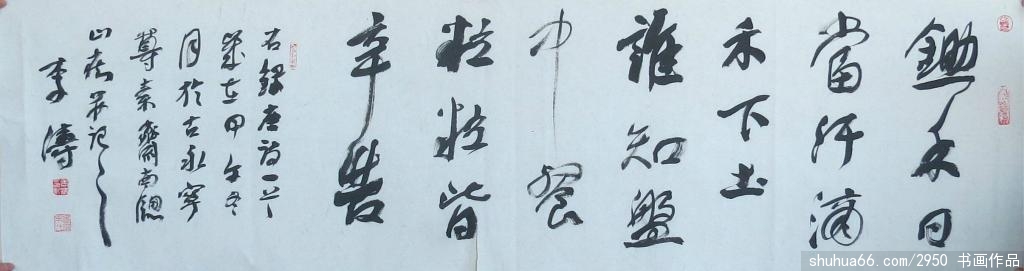 鋤禾日
當汗滴
禾下土
誰知盤
中餐
粒粒皆
辛苦
右錄唐詩一首
歲在甲午冬
月於古永寧
尊素齋南窗
山夜并記之
李濤
shuhua66.com/2950 书画作品